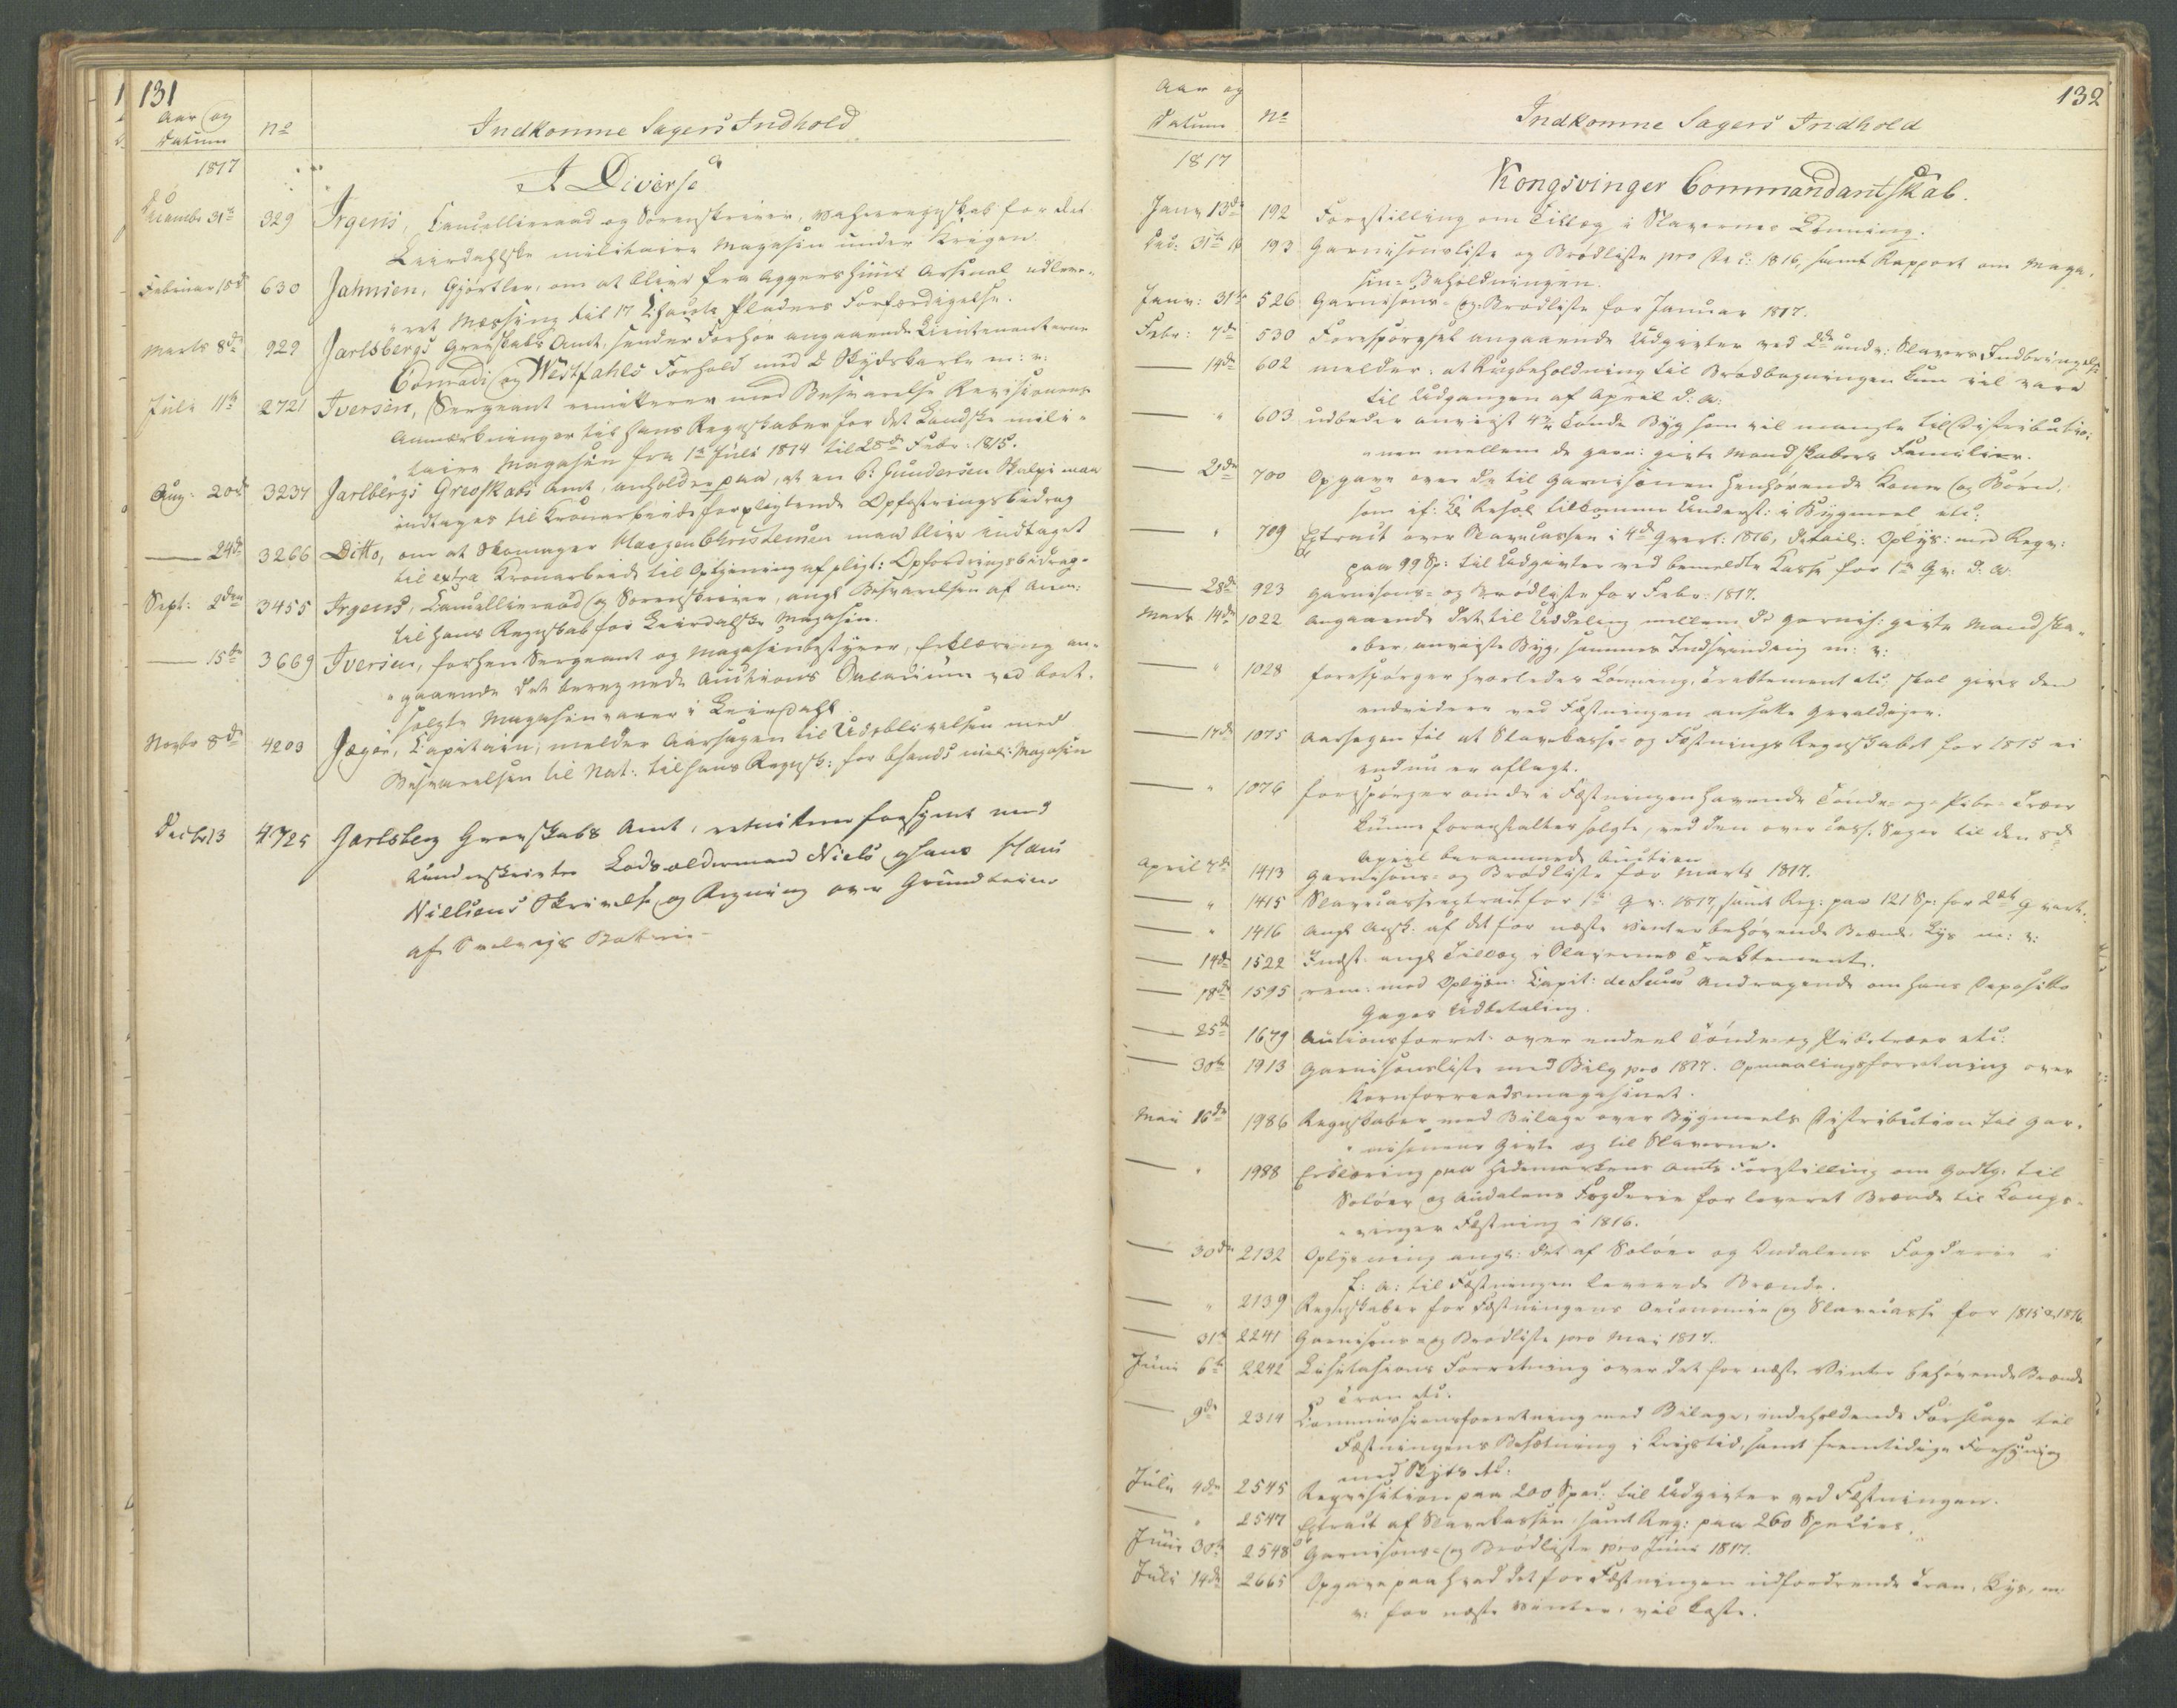 131
Aar og
Datum
No
Indkomne Sagers Indhold
1817
I Diverse
Decembr 31te 329 Irgens, Cancellieraad og Sorenskriver,
Leirdahlske militaire Magasin under Krigen.
Februar 18de 630 Jahnsen, Gjørtler, om at blive fra Aggershuus Arsenal udleve-
ret Messing til 17 Pladers Forfærdigelse.
Marts 8de 929 Jarlsbergs Grevskabs Amt, sender Forhør angaaende Lieutenanterne
Conradi og Westfahls Forhold mod 2 Skydskarle m: v:
Juli 11te 2721 Iversen, Sergeant remitterer med Besvarelse Revisionens
Anmærkninger til hans Regnskaber for det Landske mili-
taire Magasin fra 1te Juli 1814 til 28de Febr: 1815.
Aug: 20de 3234 Jarlbergs Grevskabs Amt, anholder paa, at en C: Gundersen maa
indtages til Kronarbeide forpligtende Opfostringsbidrag
— 24de 3266 Ditto, om at Skomager Christensen maa blive indtaget
til extra Kronarbeide til Optjening af pligt: Opfostringsbidrag.
Sept: 2den 3455 Irgens, Cancellieraad og Sorenskriver, angl Besvarelsen af Anm:
til hans Regnskab for Leirdalske Magasin.
— 15de 3669 Iversen, forhen Sergeant og Magasinbestyrer, Erklæring an-
gaaende det beregnede Auctions Salarium ved bort-
solgte Magasinvarer i Leirdahl
Novbr 8de 4203 Jæger, Capitain, melder Aarsagen til Udeblivelsen med
Besvarelsen til Not: til hans Regnsk: for mil: Magasin
Decbr 13 4725 Jarlsberg Grevskabs Amt, forsynet med
Underskrivter Lodsolderman Niels og hans
Nielsens Skrivelse og Regning over
af Batterie
132
Aar og
Datum
No
Indkomne Sagers Indhold
1817
Kongsvinger Commandantskab.
Janr 13de 192 Forestilling om Tillæg i Slavernes Lønning.
Dec: 31te 16 193 Garnisonsliste og Brødliste pro Dec: 1816, samt Rapport om Maga-
sin-Beholdningen.
Janr: 31te 526 Garnisons- og Brødliste for Januar 1817.
Febr: 7de 530 Forespørgsel angaaende Udgivter ved 2de Slavers Indbringelse
— 14de 602 melder, at Rugbeholdning til Brødbagningen kun vil vare
til Udgangen af April d: A:
— " 603 udbeder anviist Tønde Byg som vil mangle til Distributio-
nen mellem de garn: givte Mandskabers Familier.
— 21de 700 Opgave over de til Garnisonen henhørende Koner og Børn,
som if: Kl Resol tilkomme Underst: i Bygmeel etc:
— " 709 Extract over Slavecassen i 4de Qvart: 1816, detail: Oplys: med Reqv:
paa 99 Sp: til Udgivter ved bemeldte Kasse for 1te Qv: d: A:
— 28de 923 Garnisons- og Brødliste for Febr: 1817.
Marts 14de 1022 Angaaende det til Uddeling mellem de garnis: givte Mandska-
ber, anviiste Byg, sammes Indsvinding m: v:
— " 1028 forespørger hvorledes Lønning, Tractement etc: skal gives den
endvidere ved Fæstningen ansatte Gevaldiger.
— 17de 1075 Aarsagen til at Slavekasse- og Fæstnings Regnskabet for 1815 ei
endnu er aflagt.
— " 1076 forespørger om de i Fæstningen havende Tønde- og Pibe-Træer
kunne foranstaltes solgte, ved den over cass: Sager til den 8de
April berammede Auction
April 7de 1413 Garnisons- og Brødliste for Marts 1817.
— " 1415 Slavecasseextract for 1te Qv: 1817, samt Req: paa 121 Sp: for 2det Qvart.
— " 1416 Angl Ansk: af det for næste Vinter behøvende Brænde Lys m: v:
— 14de 1522 Indst: angl Tillæg i Slavernes Tractement.
— 18de 1595 rem: med Oplysn: Capit: de Seues Andragende om hans Deposito
Gages Udbetaling.
— 25de 1679 Auctionsforret: over endeel Tønde- og Pibetræer etc:
— 30te 1913 Garnisonsliste med Bilg pro 1817. Opmaalingsforretning over
Kornforraadsmagasinet.
Mai 16de 1986 Regnskaber med Bilage over Bygmeels Distribution til Gar-
nisonens Givte og til Slaverne.
— " 1988 Erklæring paa Hedemarkens Amts Forestilling om Godtg: til
Soløer og Audalens Fogderie for leveret Brænde til Kongs-
vinger Fæstning i 1816.
— 30de 2132 Oplysning angl: det af Soløer og Oudalens Fogderie i
f: A: til Fæstningen leverede Brænde.
— " 2139 Regnskaber for Fæstningens Oeconomie og Slavecasse for 1815 a 1816
— 31te 2241 Garnisons- og Brødliste pro Mai 1817.
Juni 6te 2242 Licitations Forretning over det for næste Vinter behøvende Brænde
Tran etc.
— 9de 2314 Commissionsforretning med Bilage, indeholdende Forslage til
Fæstningens Besætning i Krigstid, samt fremtidige Forsyning
med Skyts etc:
Juli 4de 2545 Reqvisition paa 200 Spec: til Udgivter ved Fæstningen.
— " 2547 Extract af Slavekassen, samt Req: paa 260 Species.
Juni 30te 2548 Garnisons- og Brødliste pro Juni 1817.
Juli 14de 2665 Opgave paa hvad det for Fæstningen udfordrende Tran, Lys, m:
v: for næste Vinter, vil koste.